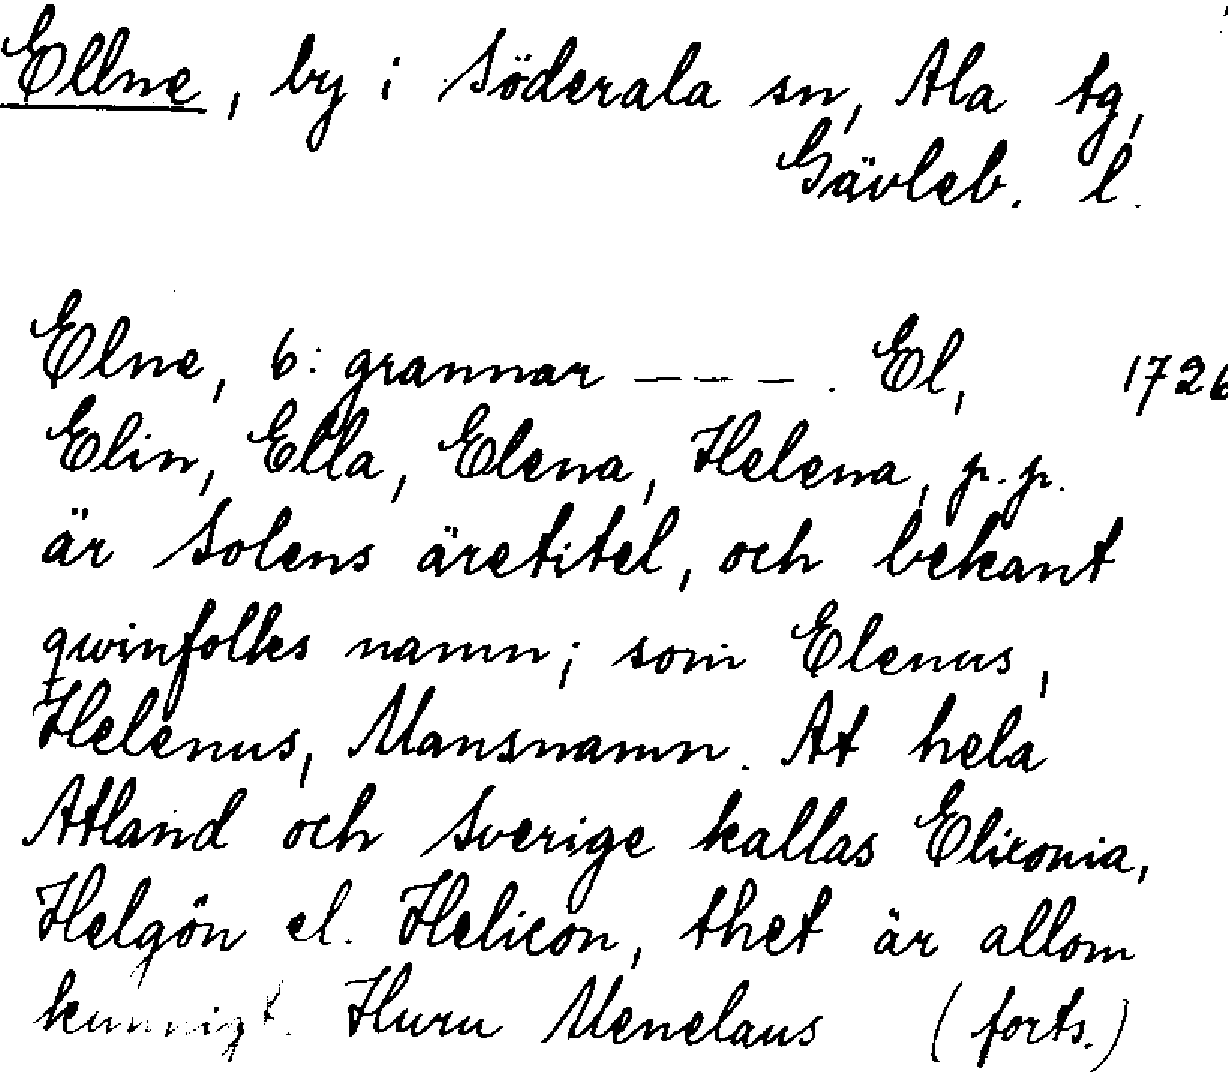 Ellne, by i Söderala sn, Ala tg,
Gävleb. l.
Elne, 6: grannar _ _ _ . El, 1726
Elin, Ella, Elena, Helena, p. p.
är Solens äretitel, och bekant
qwinfolks namn; som Elenus,
Helenus, Mansnamn. At hela
Atland och Sverige kallas Elixonia,
Helgön el. Helicon, thet är allom
kunnigt. Huru Menelaus (forts.)